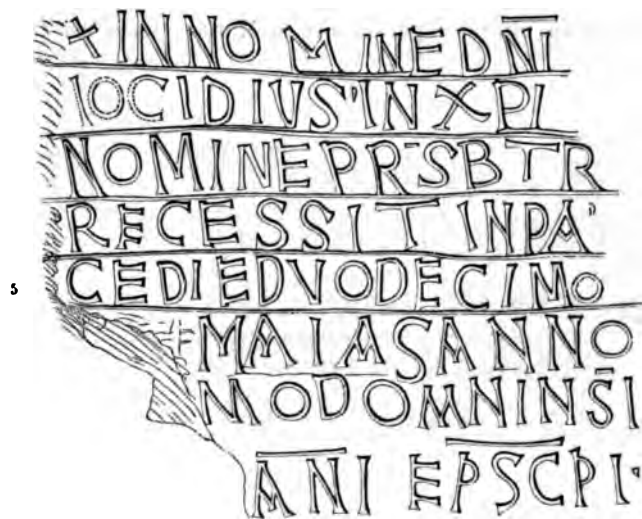 + IN NOMINE DNI
IOCIDIUS' IN XPI
NOMINE PRSBTR
RECESSIT IN PA
CE DIE DVODECIMO
MAIAS ANNO
MO DOMNI NSI
ANI EPSCPI
5